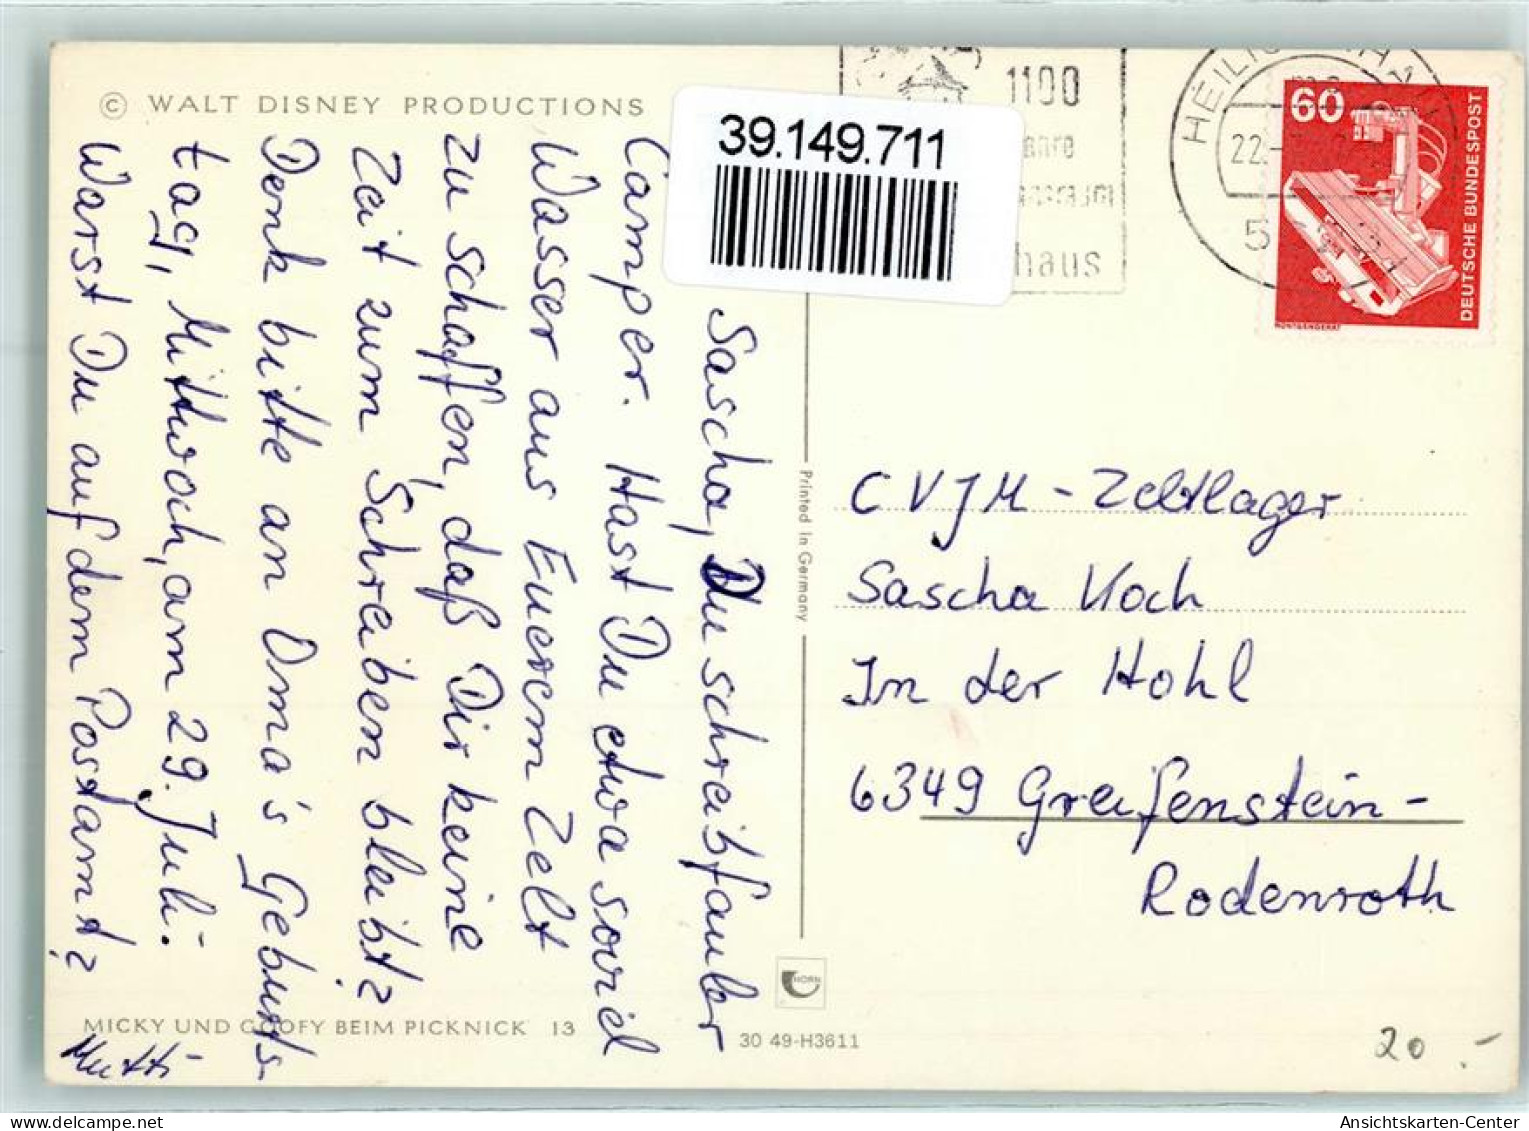 © WALT DISNEY PRODUCTIONS
39.149.711
1100
haus
22.
5
60
DEUTSCHE BUNDESPOST
Sascha, Du schreibfauler
Camper. Hast Du etwa soviel
Wasser aus Euerem Zelt
zu schaffen, daß Dir keine
Zeit zum Schreiben bleibt?
Denk bitte an Oma's Geburts-
tag, Mittwoch, am 29. Juli.
Warst Du auf dem Postamt?
Mutti
Printed in Germany
CVJM-Zeltlager
Sascha Koch
In der Hohl
6349 Greifenstein-
Rodenroth
HORN
MICKY UND GOOFY BEIM PICKNICK 13
30 49-H3611
20.-
delcampe.net
Ansichtskarten-Center